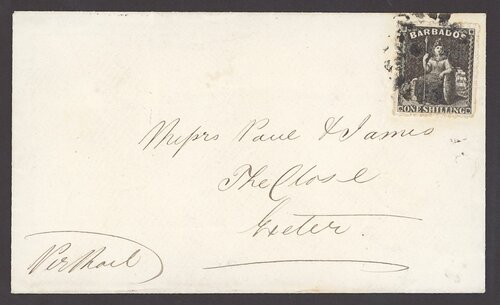 BARBADOS
ONE SHILLING
Messrs Paul & James
The Close
Exeter.
Per Mail